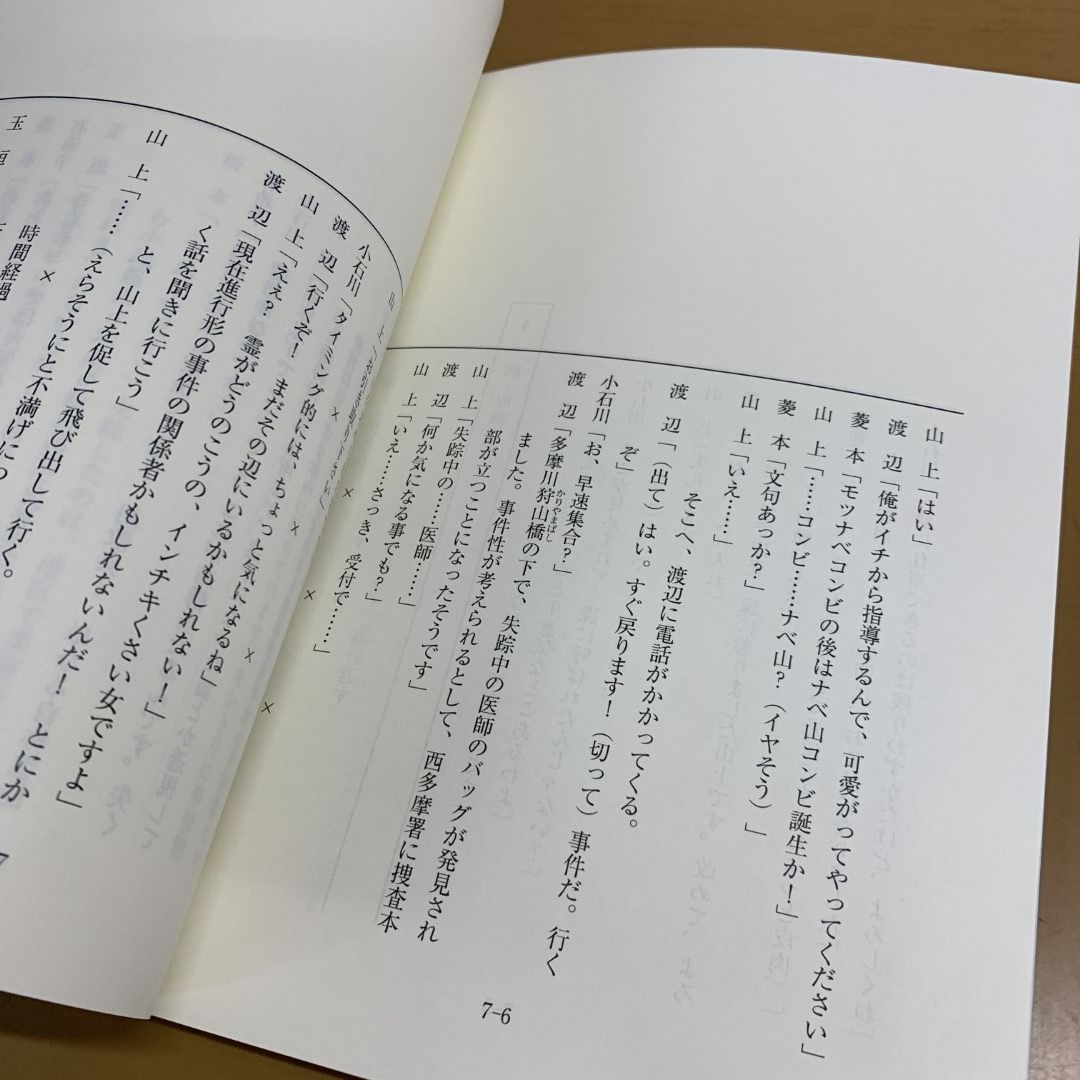 山　上「はい」
渡　辺「俺がイチから指導するんで、可愛がってやってください」
菱　本「モツナベコンビの後はナベ山コンビ誕生か！」
山　上「……コンビ……ナベ山？（イヤそう）」
菱　本「文句あっか？」
山　上「いえ……」
そこへ、渡辺に電話がかかってくる。
渡　辺「（出て）はい。すぐ戻ります！（切って）事件だ。行く
ぞ」
小石川「お、早速集合？」
渡　辺「多摩川狩山橋の下で、失踪中の医師のバッグが発見され
かりやまばし
ました。事件性が考えられるとして、西多摩署に捜査本
部が立つことになったそうです」
山　上「失踪中の……医師……」
渡　辺「何か気になる事でも？」
山　上「いえ……さっき、受付で……」
×　×　×
7-6
小石川「タイミング的には、ちょっと気になるね」
渡　辺「行くぞ！　まだその辺にいるかもしれない！」
山　上「えぇ？　霊がどうのこうの、インチキくさい女ですよ」
渡　辺「現在進行形の事件の関係者かもしれないんだ！　とにか
く話を聞きに行こう」
と、山上を促して飛び出して行く。
山　上「……（えらそうにと不満げに
×
時間経過
玉　垣